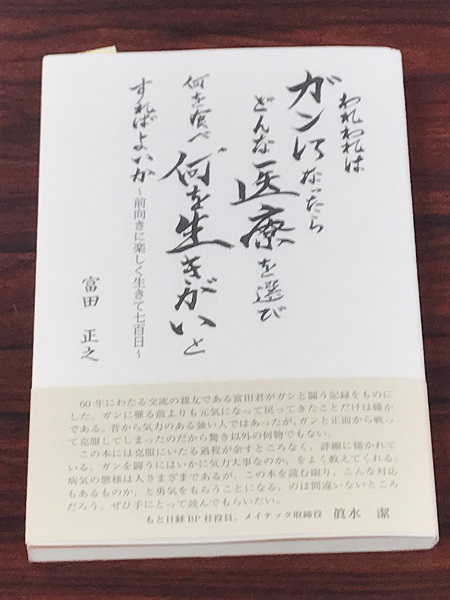 われわれは
ガンになったら
どんな医療を選び
何を食べ何を生きがいと
すればよいか
~前向きに楽しく生きて七百日~
富田 正之
60年にわたる交流の親友である富田君がガンと闘う記録をものに
した。ガンに罹る前よりも元気になって戻ってきたことだけは確か
である。昔から気力のある強い人ではあったが、ガンと正面から戦っ
て克服してしまったのだから驚き以外の何物でもない。
この本には克服にいたる過程が余すところなく、詳細に描かれて
いる。ガンを闘うにはいかに気力大事なのか、をよく教えてくれる。
病気の態様は人さまざまであるが、この本を読む限り、こんな対応
もあるものか、と勇気をもらうことになる、のは間違いないところ
だろう。ぜひ手にとって読んでもらいたい。
もと日経BP社役員、メイテック取締役 眞水 潔